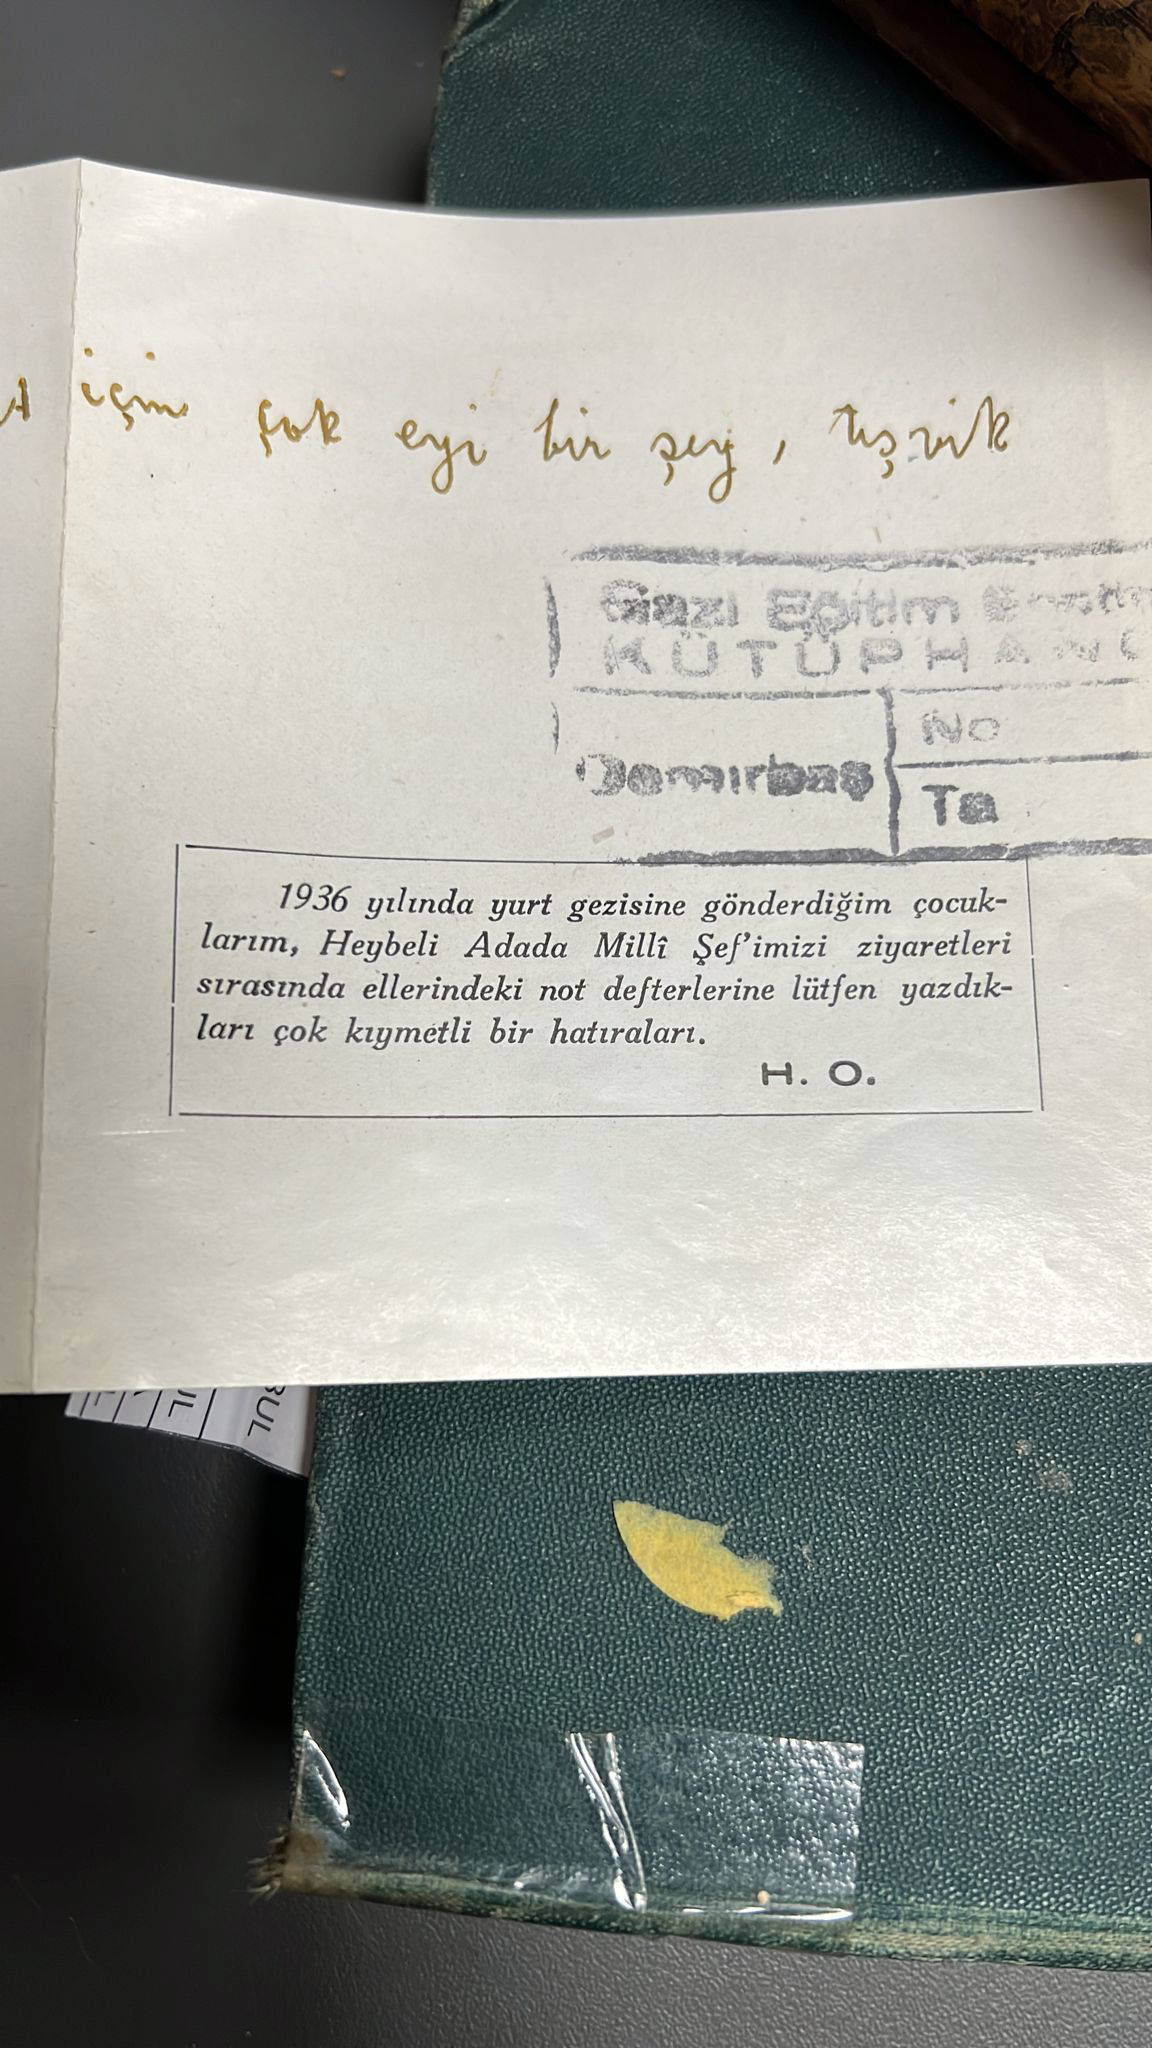 için çok eyi bir şey, teşvik
Gazi Eğitim
KÜTÜPHANE
Demirbaş
No
Ta
1936 yılında yurt gezisine gönderdiğim çocuk-
larım, Heybeli Adada Millî Şef'imizi ziyaretleri
sırasında ellerindeki not defterlerine lütfen yazdık-
ları çok kıymetli bir hatıraları.
H. O.
BUL
UL